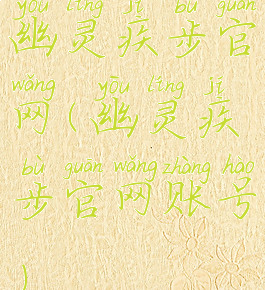 yōu líng jí bù guān
幽灵疾步官
wǎng yōu líng jí
网(幽灵疾
bù guān wǎng zhàng hào
步官网账号
)